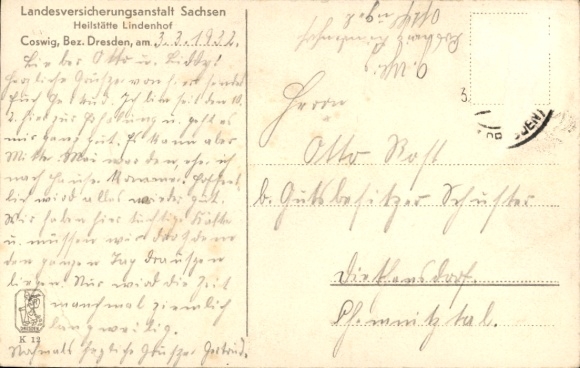 Landesversicherungsanstalt Sachsen
Heilstätte Lindenhof
Coswig, Bez. Dresden, am 3.3.1932.
Liebes Otto u. Liddy!
Herzliche Grüße von hier sendet
Euch Gertrud. Ich bin seit den 10.
2. hier zur Erholung u. geht es
mir ganz gut. Es kann aber
Mitte Mai werden, ehe ich
nach Hause komme. Hoffent-
lich wird alles wieder gut.
Wir haben hier tüchtige Kälte
u. müssen wir doch denn
den ganzen Tag draußen
liegen. Nur wird die Zeit
manchmal ziemlich
langweilig.
Nochmals herzliche Grüße Gertrud.
K 12
Herrn
Otto
b. Gutsbesitzer Schuster
Diethensdorf
Chemnitztal.